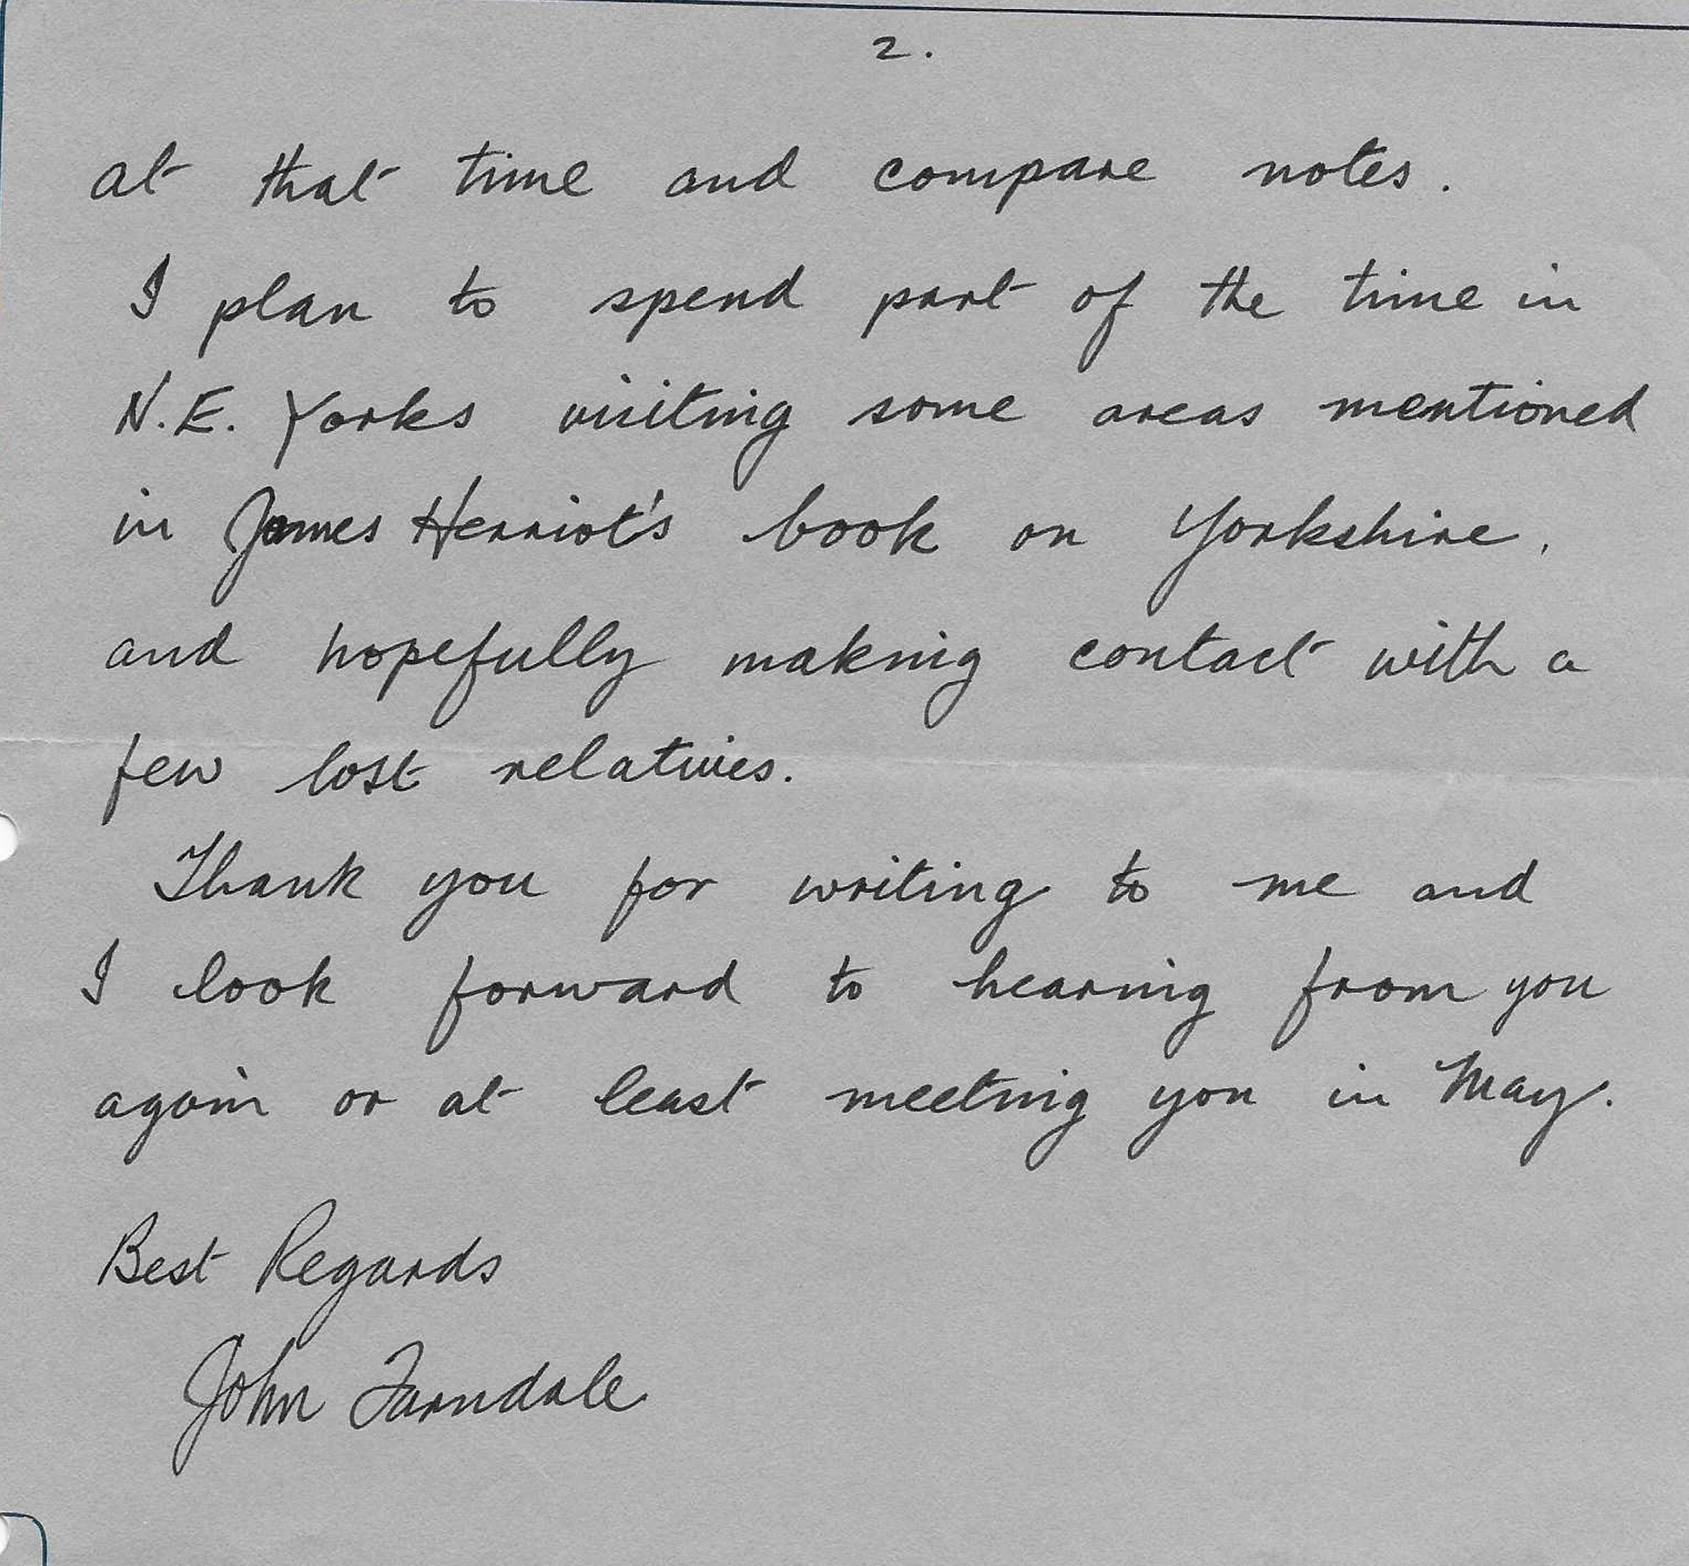 2.
at that time and compare notes.
I plan to spend part of the time in
N.E. Yorks visiting some areas mentioned
in James Herriot's book on Yorkshire,
and hopefully making contact with a
few lost relatives.
Thank you for writing to me and
I look forward to hearing from you
again or at least meeting you in May.
Best Regards
John Farndale